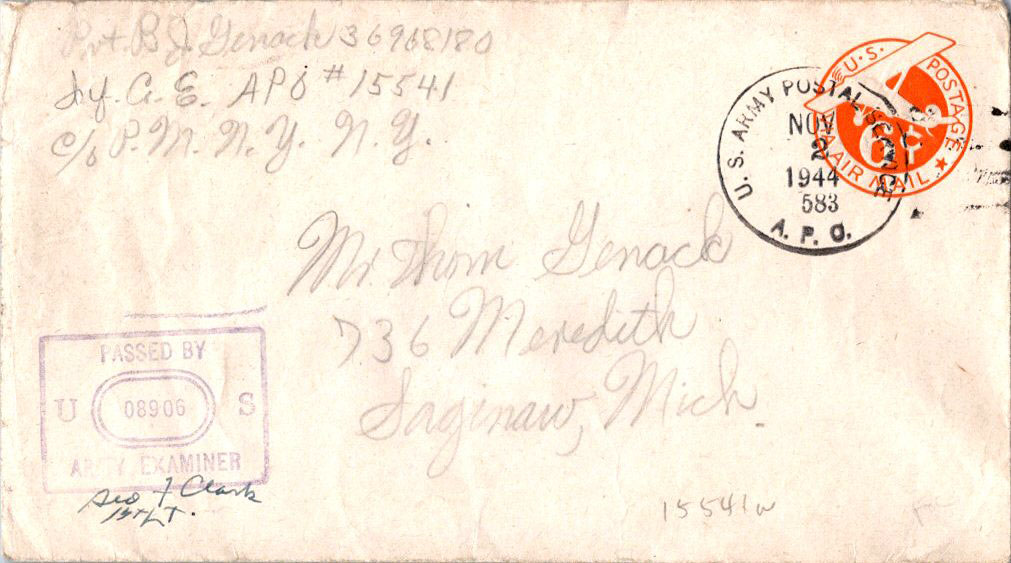 Pvt. B. J. Genack 36968180
Inf. C. E. APO # 15541
c/o P. M. N. Y. N. Y.
U.S. POSTAGE
6¢
VIA AIR MAIL
U. S. ARMY POSTAL SERVICE
NOV
2
1944
583
A. P. O.
Mr. Thom Genack
736 Meredith
Saginaw, Mich.
PASSED BY
U 08906 S
ARMY EXAMINER
Geo F Clark
1st LT.
15541w